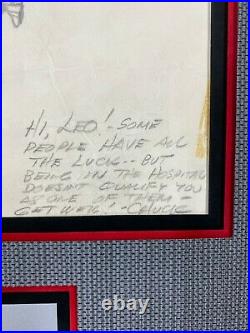 HI, LEO! - SOME
PEOPLE HAVE ALL
THE LUCK -- BUT
BEING IN THE HOSPITAL
DOESNT QUALIFY YOU
AS ONE OF THEM -
GET WELL! - CHUCK